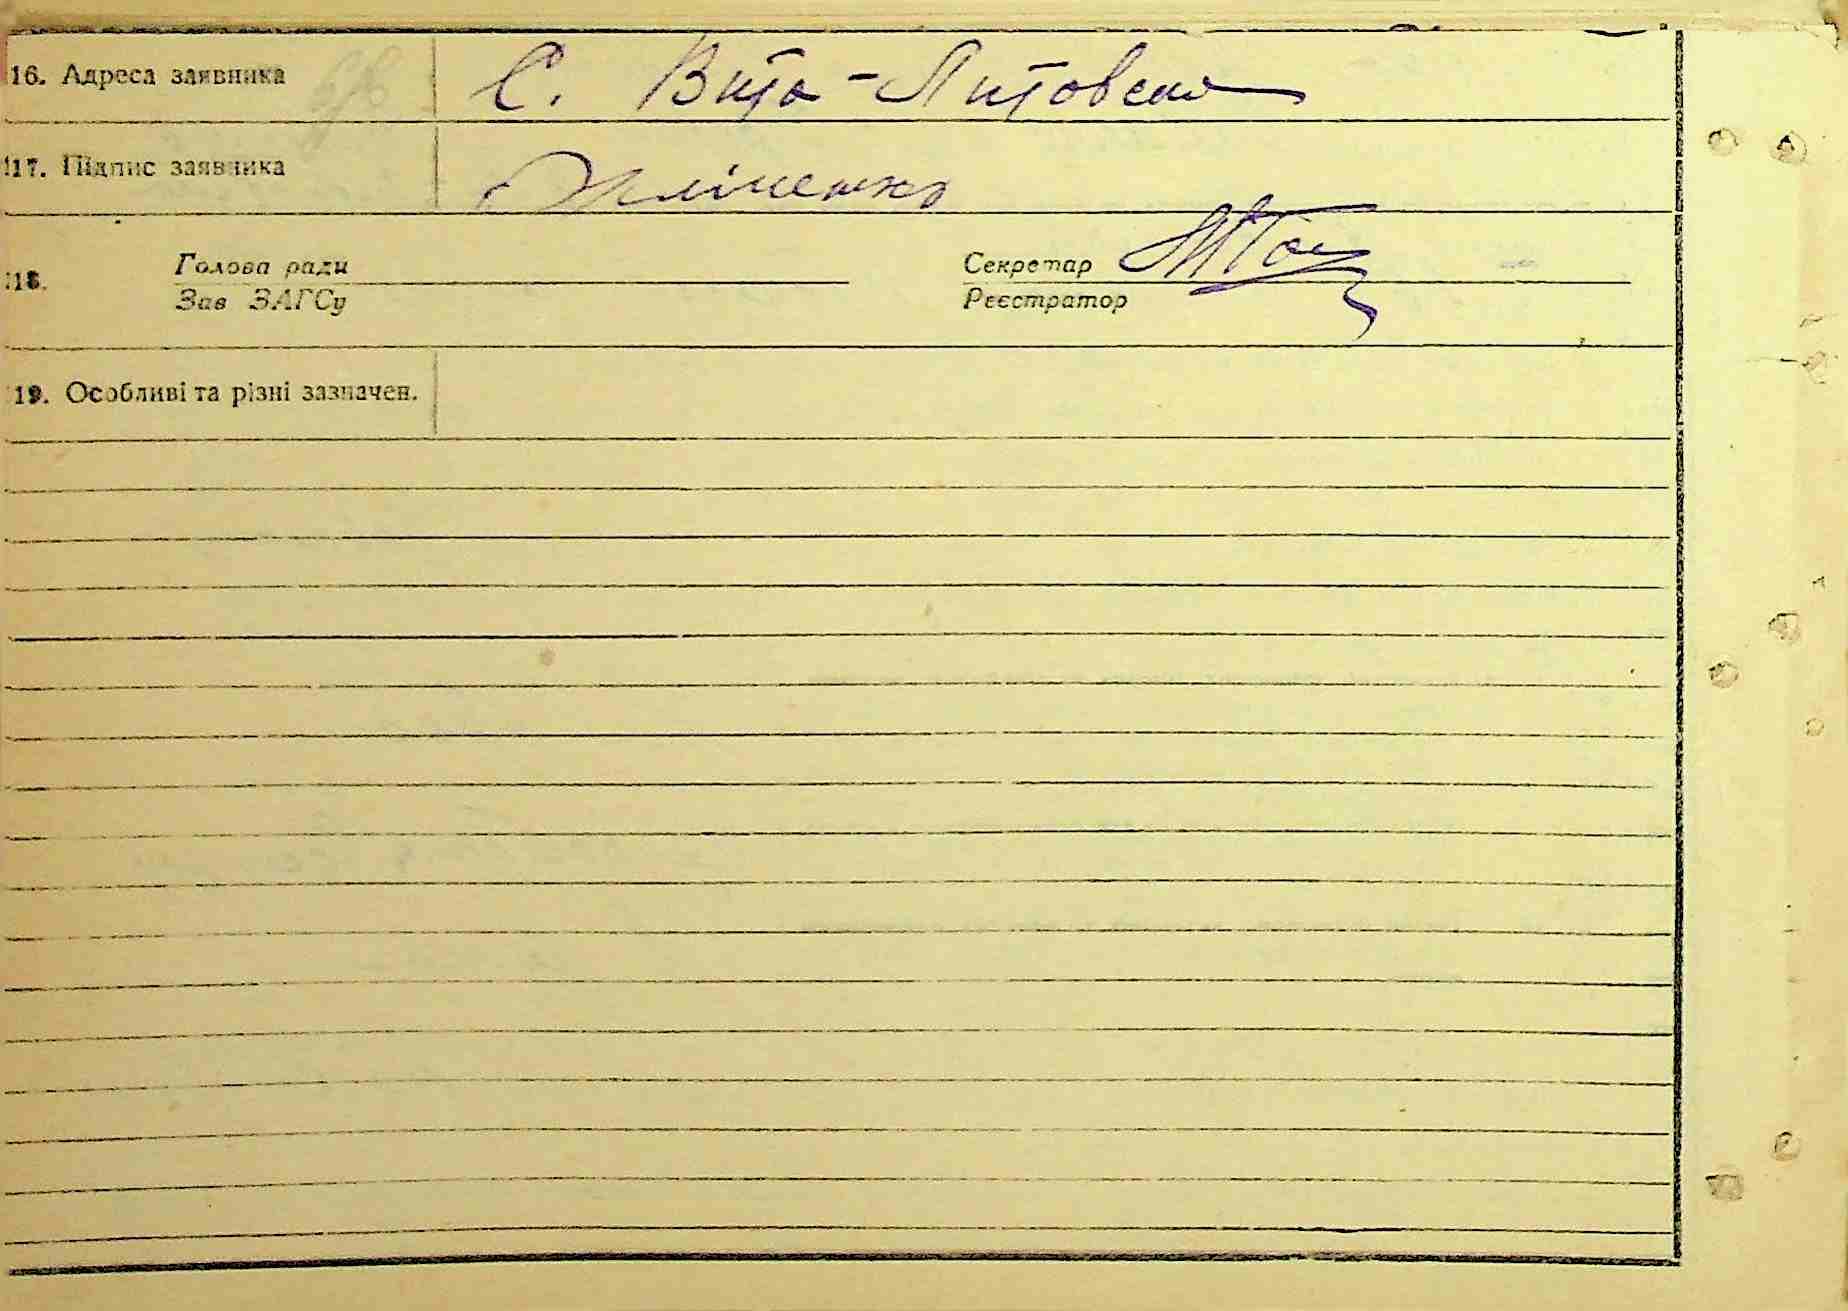 16. Адреса заявника С. Вита-Литовська
17. Підпис заявника
18. Голова ради Секретар
Зав ЗАГСу Реєстратор
19. Особливі та різні зазначен.